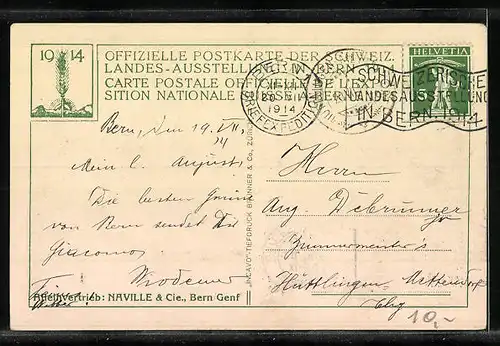 1914
OFFIZIELLE POSTKARTE DER SCHWEIZ.
LANDES-AUSSTELLUNG IN BERN
CARTE POSTALE OFFICIELLE DE L'EXPO-
SITION NATIONALE SUISSE A BERNE
BERN
1914
BRIEFEXPEDITION
SCHWEIZERISCHE
LANDESAUSSTELLUNG
IN BERN 1914
HELVETIA
5
Bern, den 19. VII.
14
Mein l. August
Die besten Grüsse
von Bern sendet Dir
Giacomo
Herrn
Aug. Debrunner
Zimmermeister's
Hüttlingen
Thg
10,-
"INCAVO"-TIEFDRUCK BRUNNER & Co., ZÜRICH
Alleinvertrieb: NAVILLE & Cie., Bern Genf